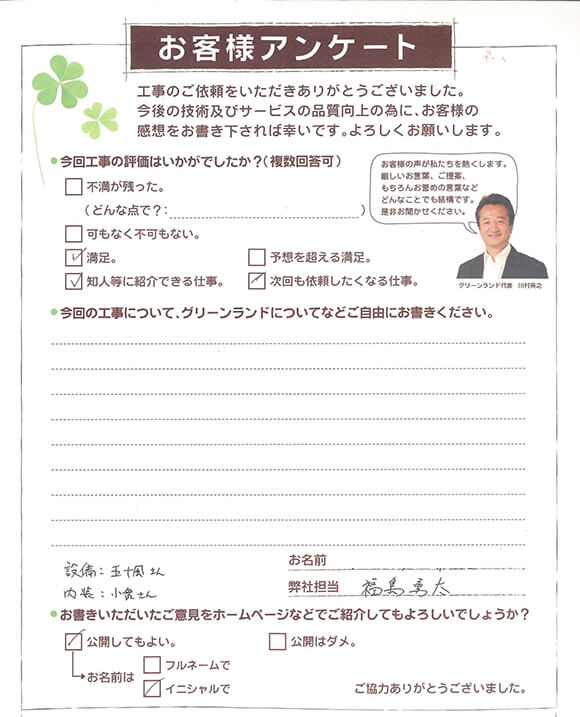 お客様アンケート
工事のご依頼をいただきありがとうございました。
今後の技術及びサービスの品質向上の為に、お客様の
感想をお書き下されば幸いです。よろしくお願いします。
今回工事の評価はいかがでしたか?(複数回答可)
不満が残った。
(どんな点で?: )
可もなく不可もない。
満足。
予想を超える満足。
知人等に紹介できる仕事。
次回も依頼したくなる仕事。
お客様の声が私たちを熱くします。
厳しいお言葉、ご提案、
もちろんお誉めの言葉など
どんなことでも結構です。
是非お聞かせください。
グリーンランド代表 川村英之
今回の工事について、グリーンランドについてなどご自由にお書きください。
お名前
設備: 五十嵐さん
内装: 小倉さん
弊社担当 福島勇太
お書きいただいたご意見をホームページなどでご紹介してもよろしいでしょうか?
公開してもよい。
公開はダメ。
お名前は
フルネームで
イニシャルで
ご協力ありがとうございました。